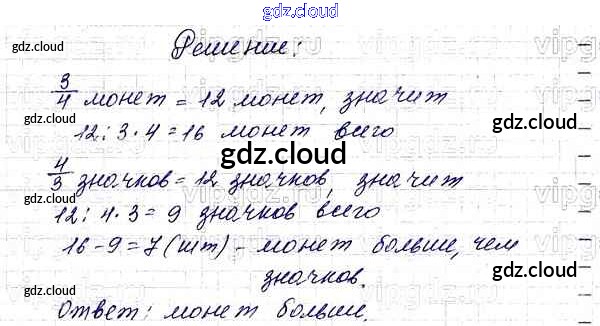 gdz.cloud
gdz.cloud
Решение:
3/4 монет = 12 монет, значит
12 : 3 · 4 = 16 монет всего
gdz.cloud
gdz.cloud
4/3 значков = 12 значков, значит
12 : 4 · 3 = 9 значков всего
gdz.cloud
gdz.cloud
16 - 9 = 7 (шт) - монет больше, чем
значков.
gdz.cloud
gdz.cloud
Ответ: монет больше.